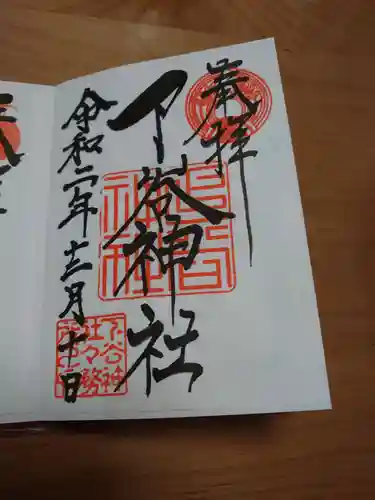 奉拝
下谷神社
令和二年十二月十日
下谷神
社々務